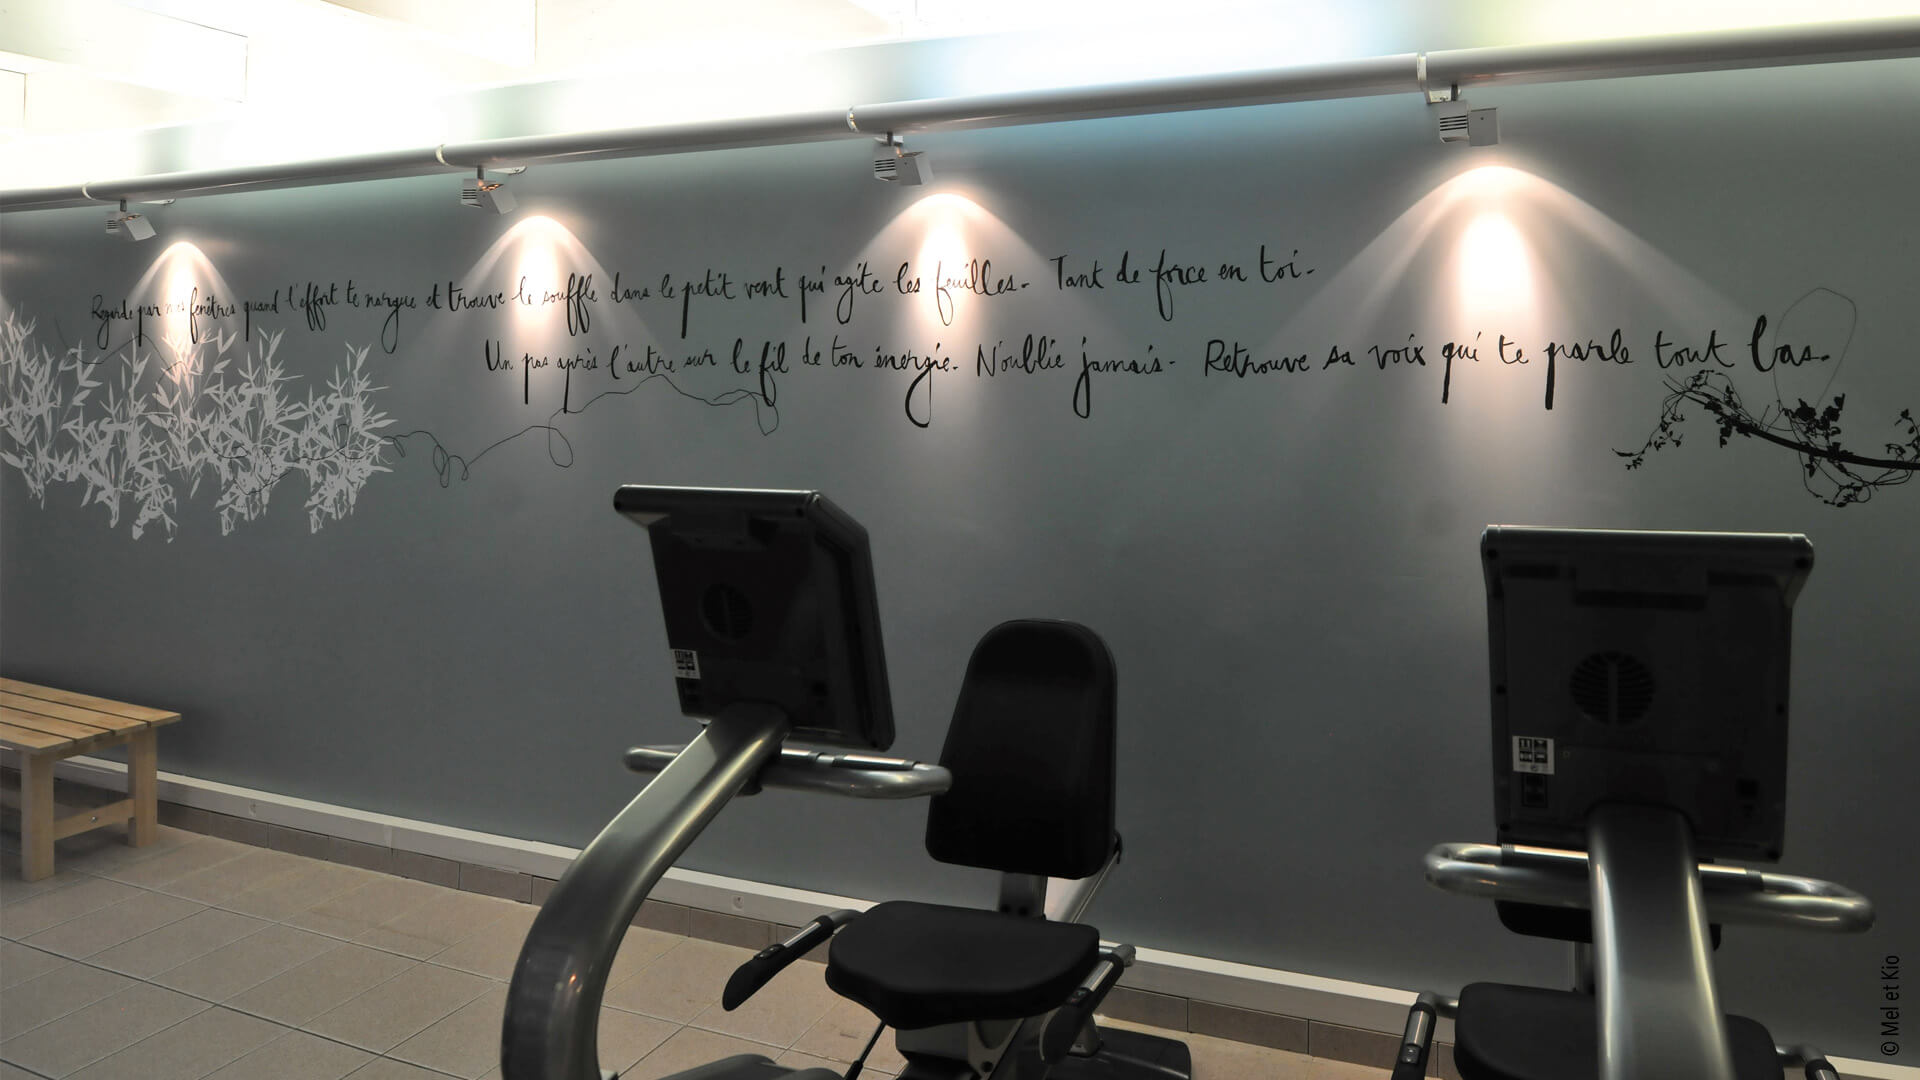 Regarde par mes fenêtres quand l'effort te nargue et trouve le souffle dans le petit vent qui agite les feuilles. Tant de force en toi.
Un pas après l'autre sur le fil de ton énergie. N'oublie jamais. Retrouve sa voix qui te parle tout bas.
© Mel et Kio